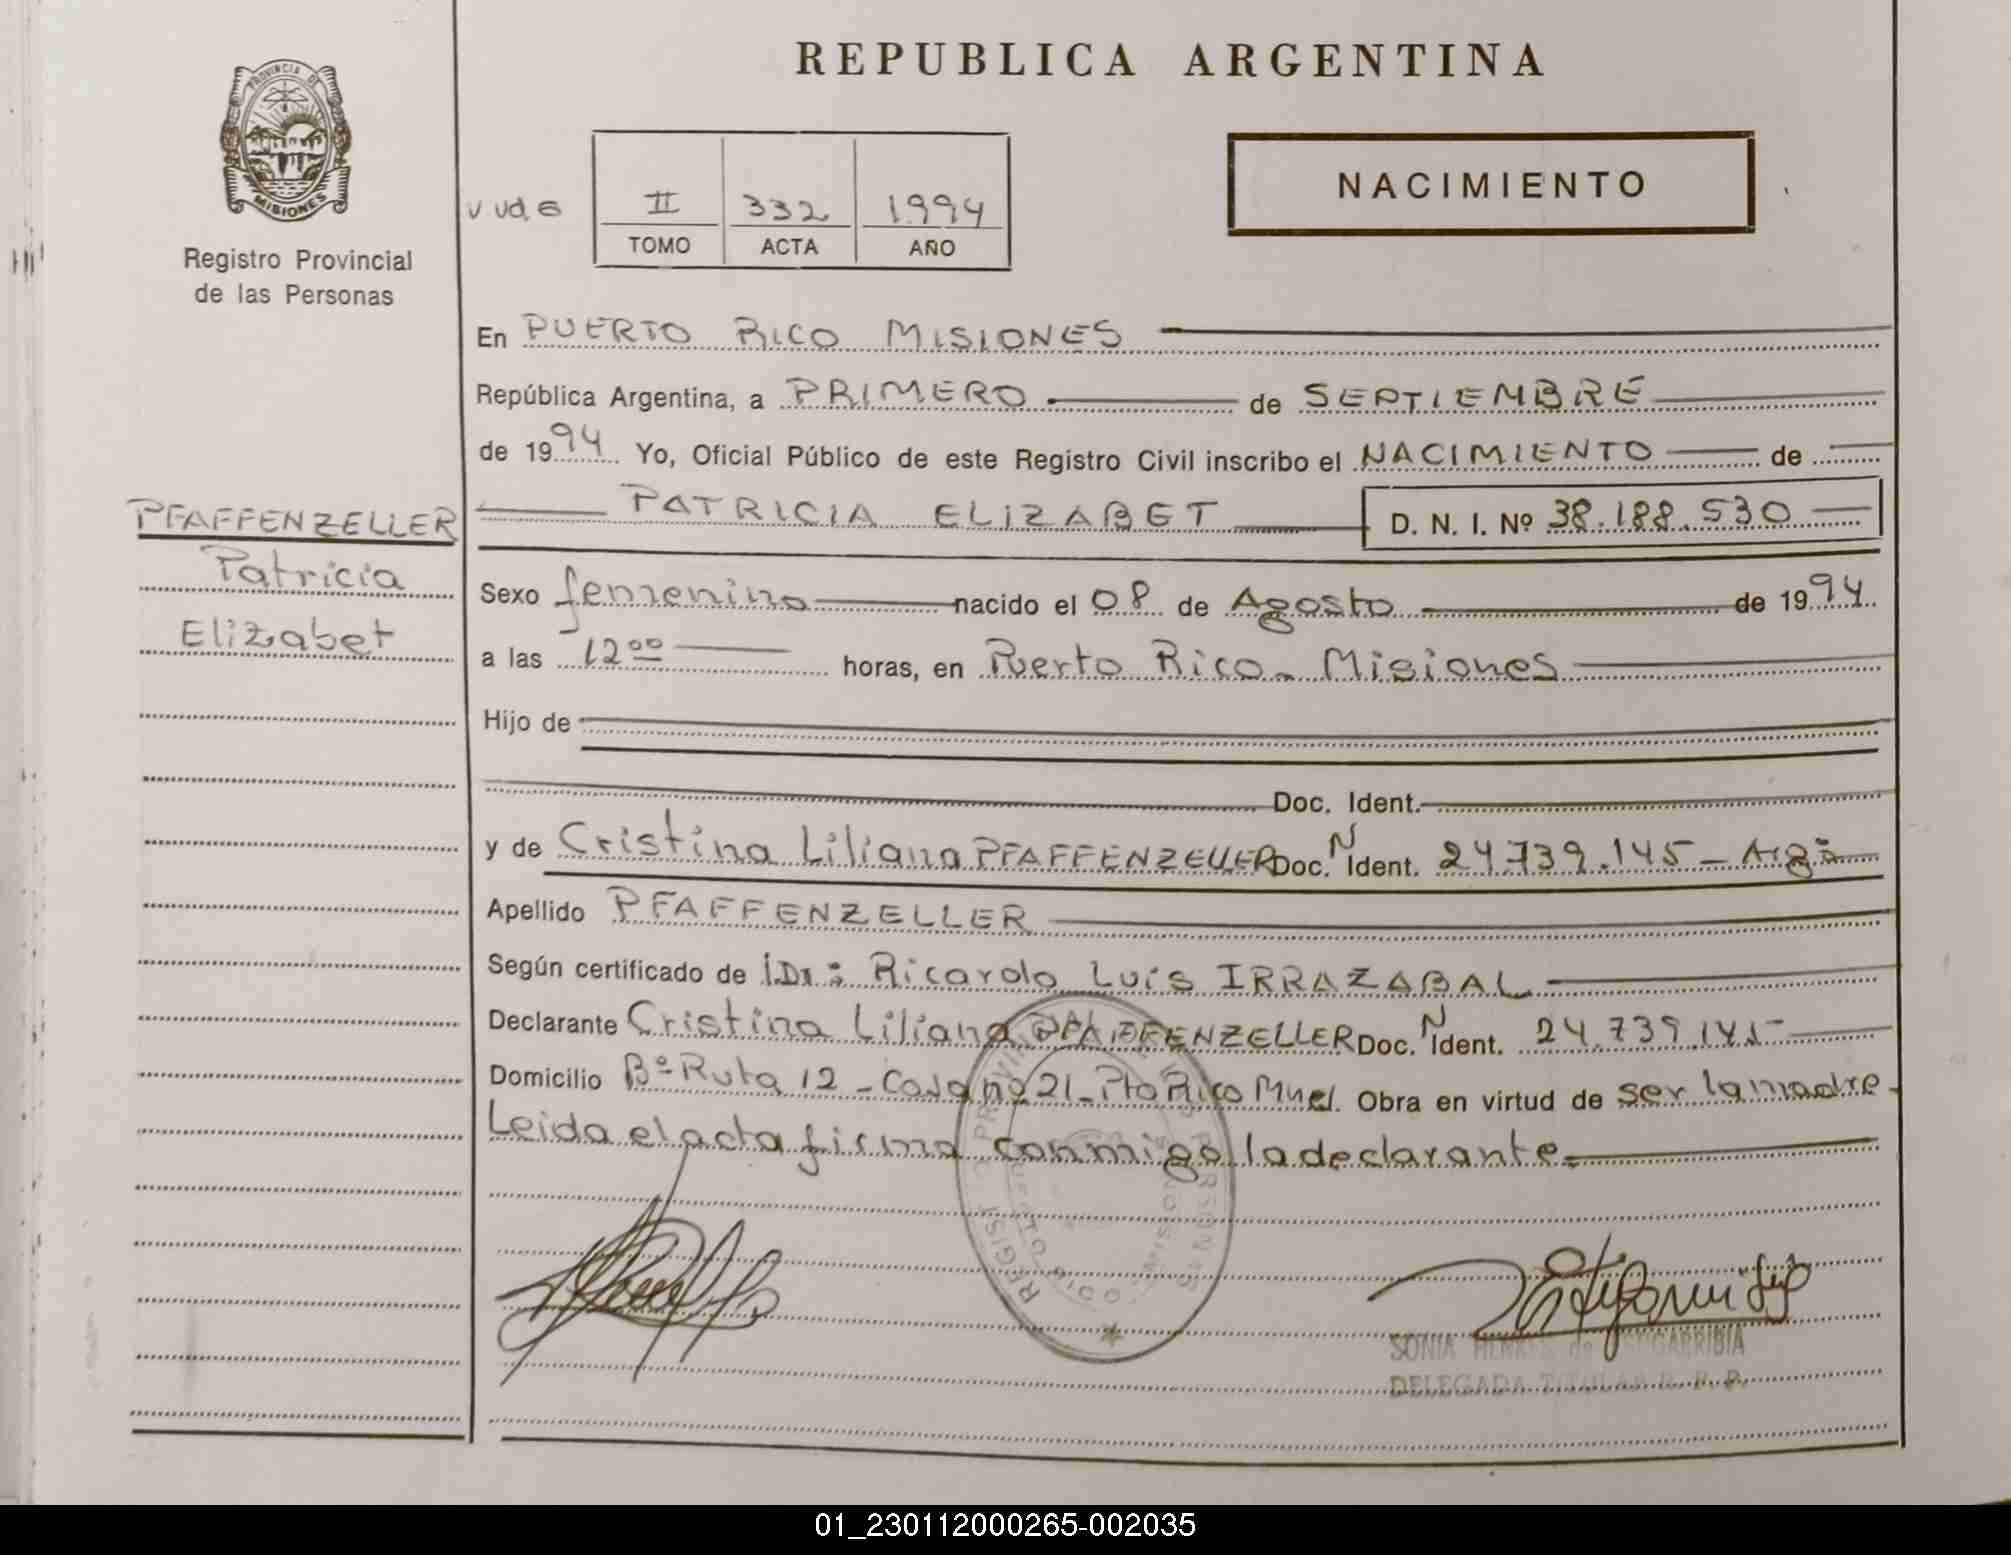 REPUBLICA ARGENTINA
PROVINCIA DE
MISIONES
Registro Provincial
de las Personas
II 332 1994
TOMO ACTA AÑO
NACIMIENTO
En PUERTO RICO MISIONES
República Argentina, a PRIMERO de SEPTIEMBRE
de 1994 Yo, Oficial Público de este Registro Civil inscribo el NACIMIENTO de
PATRICIA ELIZABET D. N. I. Nº 38.188.530
PFAFFENZELLER
Patricia
Elizabet
Sexo femenino nacido el 08 de Agosto de 1994
a las 12⁰⁰ horas, en Puerto Rico - Misiones
Hijo de
Doc. Ident.
y de Cristina Liliana PFAFFENZELLER Doc. N Ident. 24.739.145 - Argª
Apellido PFAFFENZELLER
Según certificado de Dr.: Ricardo Luis IRRAZABAL
Declarante Cristina Liliana PFAFFENZELLER Doc. N Ident. 24.739.145
Domicilio Bº Ruta 12 - Casa nº 21 - Pto Rico Mnes. Obra en virtud de ser la madre -
Leida el acta firma conmigo la declarante.
SONIA de
DELEGADA TITULAR R. P. P.
01_230112000265-002035